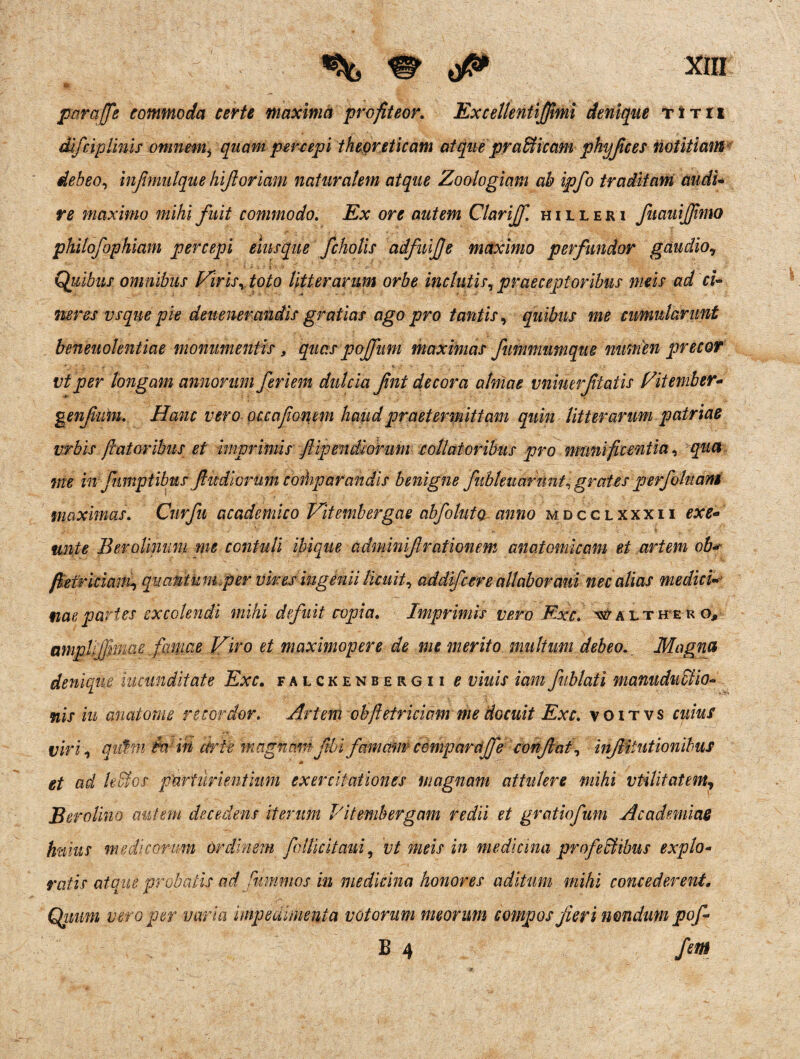 XIII
paraſſe commoda certe maxima profiteor. Excellentiſſimi denique TITII
diſciplinis omnem, quam percepi theoreticam atque practicam phyſices notitiam
debeo, inſimulque hiſtoriam naturalem atque Zoologiam ab ipſo traditam audi-
re maximo mihi fuit commodo. Ex ore autem Clariſſ. HILLERI ſuauiſſimo
philoſophiam percepi eiusque ſcholis adfuiſſe maximo perfundor gaudio,
Quibus omnibus Viris, toto litterarum orbe inclutis, praeceptoribus meis ad ci-
neres vsque pie deuenerandis gratias ago pro tantis, quibus me cumularunt
beneuolentiae monumentis, quas poſſum maximas ſummumque numen precor
vt per longam annorum ſeriem dulcia ſint decora almae vniuerſitatis Vitember-
genſium. Hanc vero occaſionem haud praetermittam quin litterarum patriae
vrbis ſtatoribus et imprimis ſtipendiorum collatoribus pro munificentia, qua
me in ſumptibus ſtudiorum comparandis benigne ſubleuarunt, grates perſoluam
maximas. Curſu academico Vitembergae abſoluto anno MDCCLXXXII exe-
unte Berolinum me contuli ibique adminiſtrationem anatomicam et artem ob-
ſtetriciam, quantum per vires ingenii licuit, addiſcere allaboraui nec alias medici-
nae partes excolendi mihi defuit copia. Imprimis vero Exc. WALTHERO,
ampliſſimae famae Viro et maximopere de me merito multum debeo. Magna
denique iucunditate Exc. FALCKENBERGII e viuis iam ſublati manuductio-
nis in anatome recordor. Artem obſtetriciam me docuit Exc. VOITVS cuius
viri, quum ea in arte magnam ſibi famam comparaſſe conſtat, inſtitutionibus
et ad lectos parturientium exercitationes magnam attulere mihi vtilitatem,
Berolino autem decedens iterum Vitembergam redii et gratioſum Academiae
huius medicorum ordinem ſollicitaui, vt meis in medicina profectibus explo-
ratis atque probatis ad ſummos in medicina honores aditum mihi concederent.
Quum vero per varia impedimenta votorum meorum compos fieri nondum poſ-
B 4 ſem